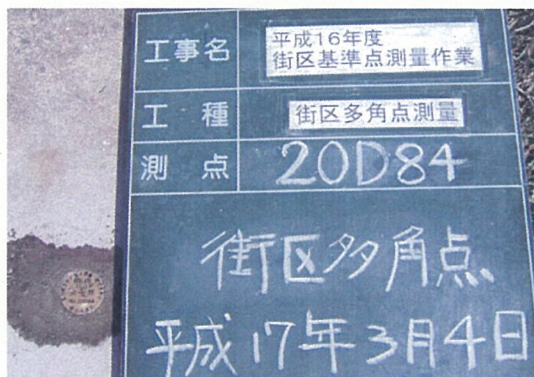 工事名
平成16年度
街区基準点測量作業
工種
街区多角点測量
測点
20D84
街区多角点
平成17年3月4日